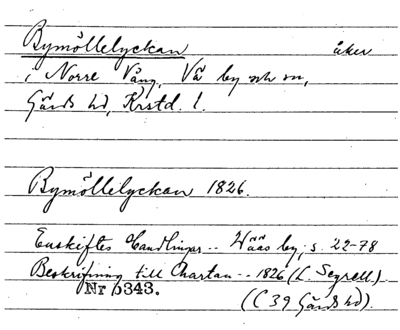 Bymöllelyckan åker
i Norre Vång, Vä by och sn,
Gärds hd, Krstd. l.
Bymöllelyckan 1826.
Enskiftes Handlingar -- Wääs by, s. 22-78
Beskrifning till Chartan -- 1826 (L. Segrell).
Nr 6343.
(C 39 Gärds hd).